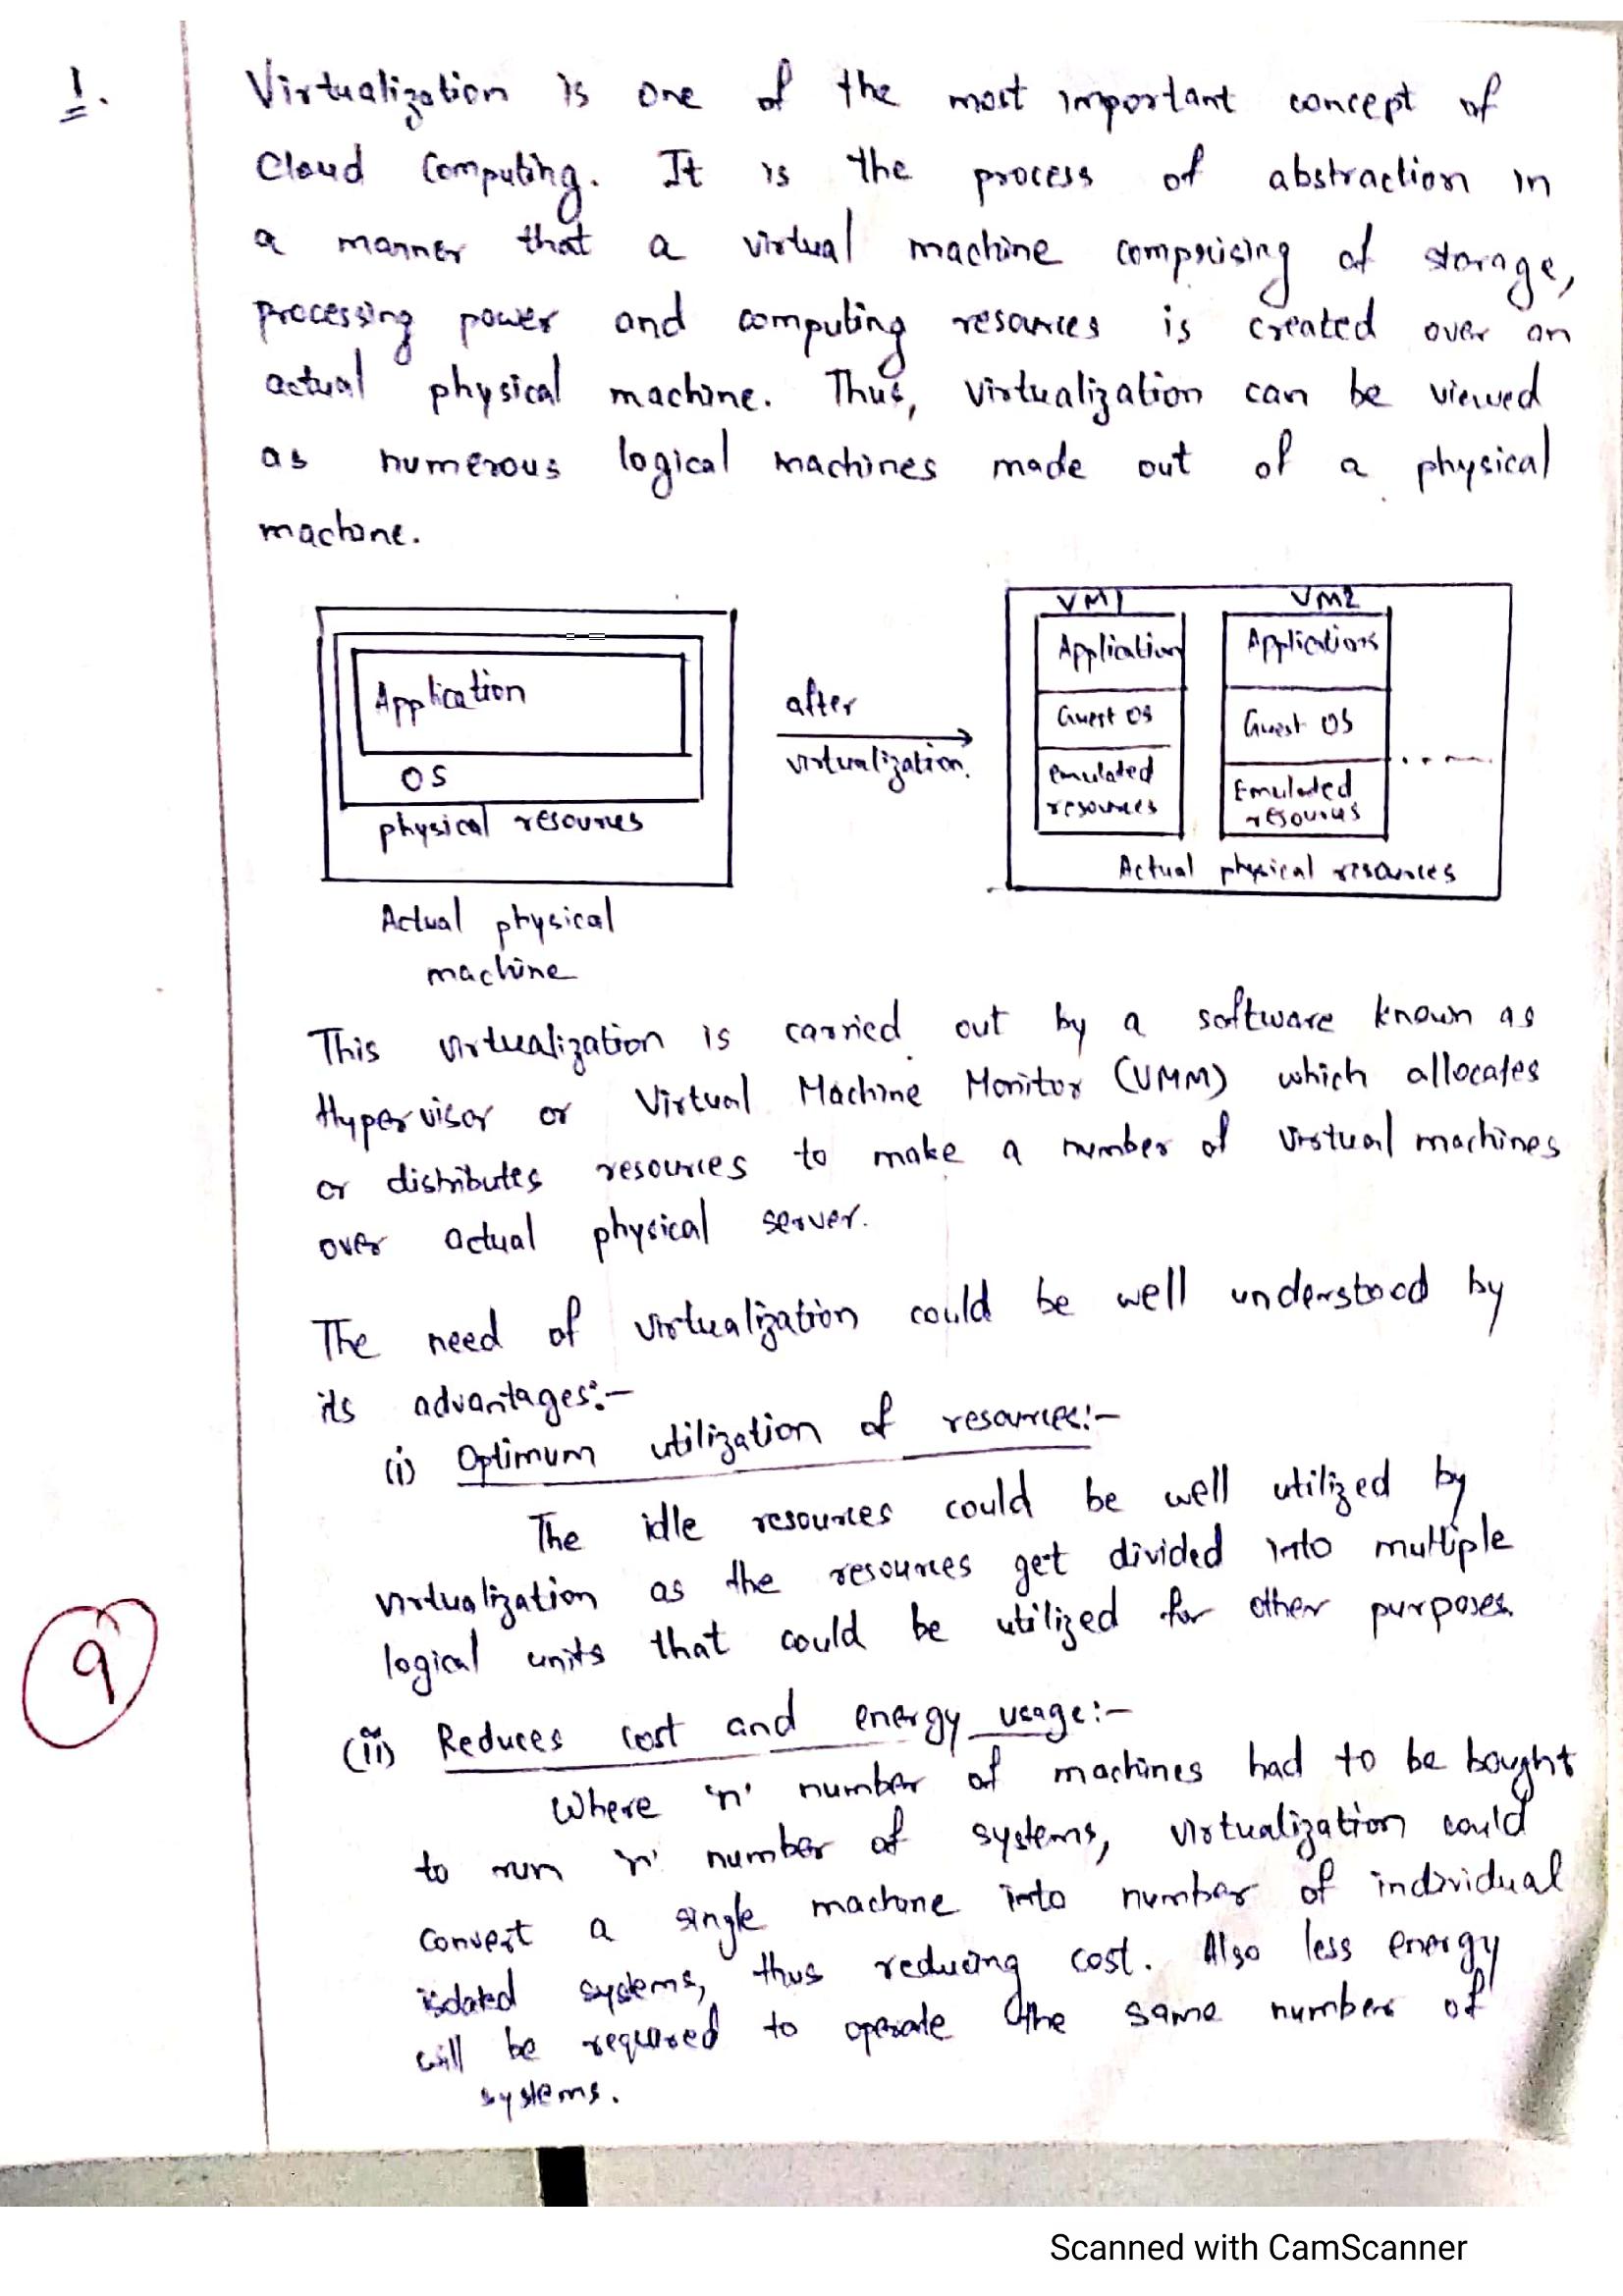 1.
Virtualization is one of the most important concept of
Cloud Computing. It is the process of abstraction in
a manner that a virtual machine comprising of storage,
processing power and computing resources is created over an
actual physical machine. Thus, virtualization can be viewed
as numerous logical machines made out of a physical
machine.
Application
OS
physical resources
Actual physical
machine
after
virtualization.
VM1
Application
Guest OS
emulated
resources
VM2
Applications
Guest OS
Emulated
resources
Actual physical resources
This virtualization is carried out by a software known as
Hypervisor or Virtual Machine Monitor (VMM) which allocates
or distributes resources to make a number of virtual machines
over actual physical server.
The need of virtualization could be well understood by
its advantages:-
(i) Optimum utilization of resources:-
The idle resources could be well utilized by
virtualization as the resources get divided into multiple
logical units that could be utilized for other purposes.
9
(ii) Reduces cost and energy usage:-
Where 'n' number of machines had to be bought
to run 'n' number of systems, virtualization could
convert a single machine into number of individual
isolated systems, thus reducing cost. Also less energy
will be required to operate the same number of
systems.
Scanned with CamScanner